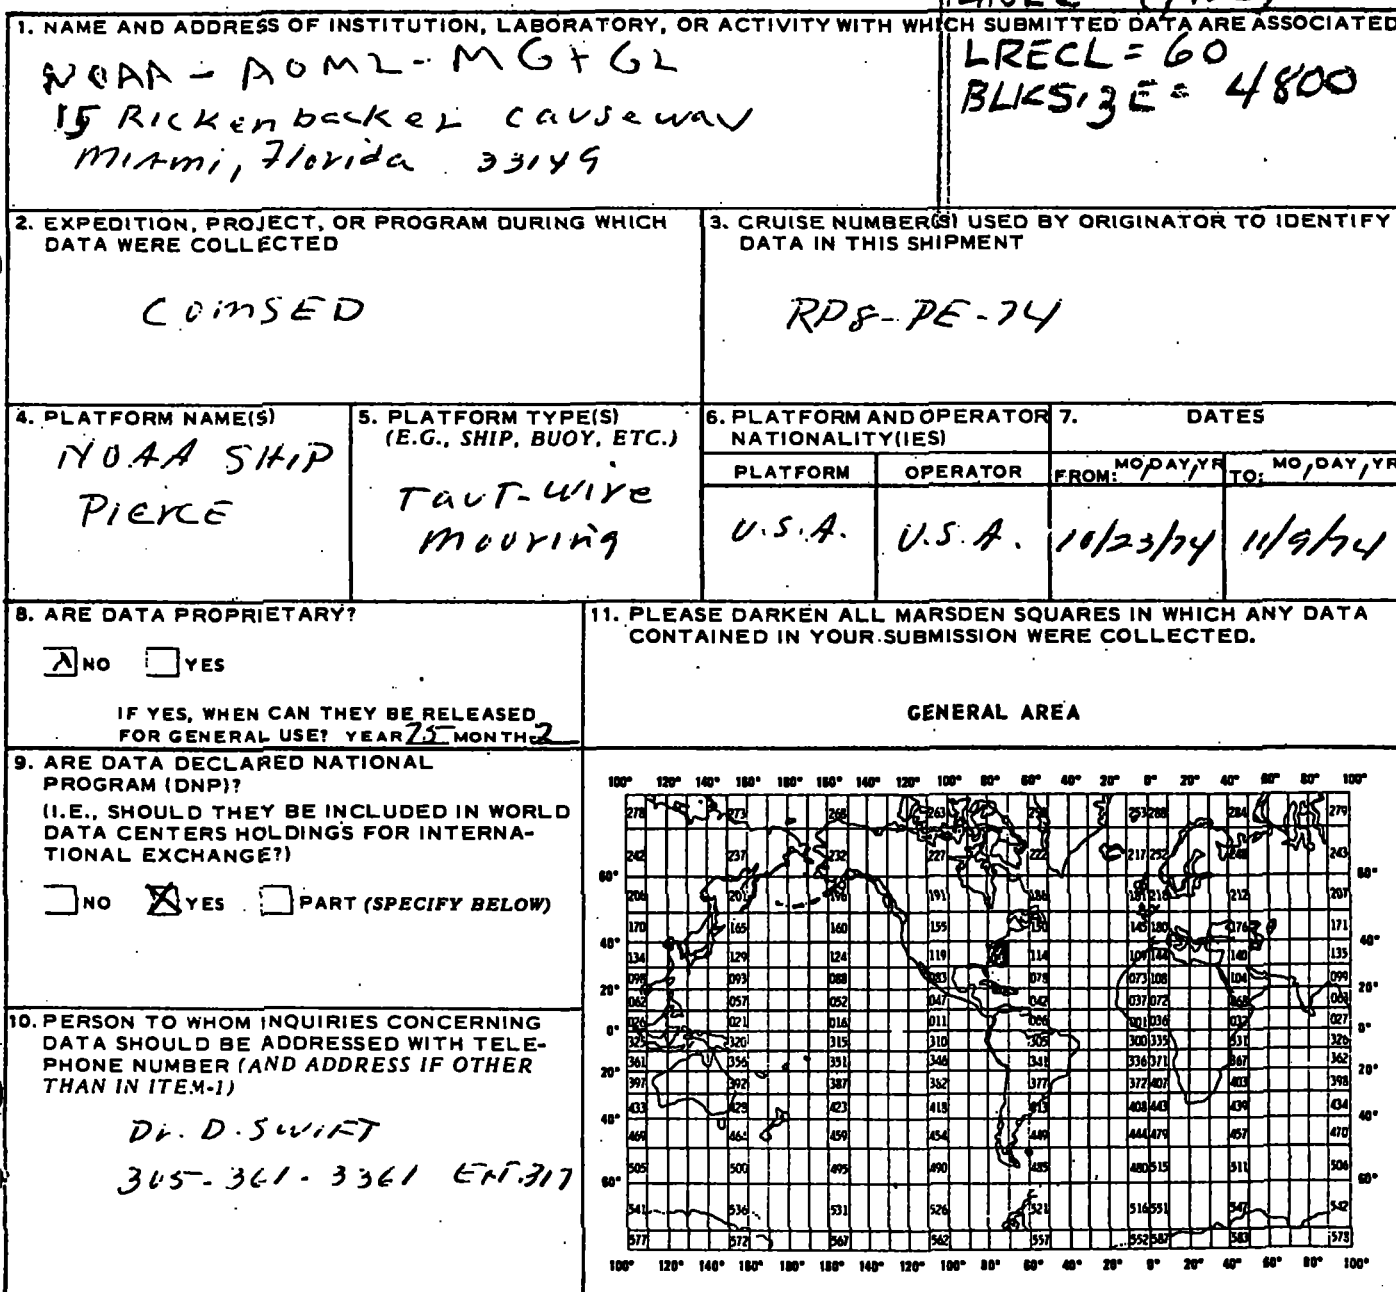 1. NAME AND ADDRESS OF INSTITUTION, LABORATORY, OR ACTIVITY WITH WHICH SUBMITTED DATA ARE ASSOCIATED
NOAA - AOML - MG+GL
15 Rickenbacker Causeway
Miami, Florida 33149
LRECL = 60
BLKSIZE = 4800
2. EXPEDITION, PROJECT, OR PROGRAM DURING WHICH
DATA WERE COLLECTED
COMSED
3. CRUISE NUMBER(S) USED BY ORIGINATOR TO IDENTIFY
DATA IN THIS SHIPMENT
RP8-PE-74
4. PLATFORM NAME(S)
NOAA SHIP
PIERCE
5. PLATFORM TYPE(S)
(E.G., SHIP, BUOY, ETC.)
TauT-wire
mooring
6. PLATFORM AND OPERATOR
NATIONALITY(IES)
PLATFORM OPERATOR
U.S.A. U.S.A.
7. DATES
FROM: MO, DAY, YR TO: MO, DAY, YR
10/23/74 11/9/74
8. ARE DATA PROPRIETARY?
NO YES
IF YES, WHEN CAN THEY BE RELEASED
FOR GENERAL USE? YEAR 75 MONTH 2
9. ARE DATA DECLARED NATIONAL
PROGRAM (DNP)?
(I.E., SHOULD THEY BE INCLUDED IN WORLD
DATA CENTERS HOLDINGS FOR INTERNA-
TIONAL EXCHANGE?)
NO YES PART (SPECIFY BELOW)
10. PERSON TO WHOM INQUIRIES CONCERNING
DATA SHOULD BE ADDRESSED WITH TELE-
PHONE NUMBER (AND ADDRESS IF OTHER
THAN IN ITEM-1)
Dr. D. SWIFT
305-361-3361 EXT.317
11. PLEASE DARKEN ALL MARSDEN SQUARES IN WHICH ANY DATA
CONTAINED IN YOUR SUBMISSION WERE COLLECTED.
GENERAL AREA
100° 120° 140° 160° 180° 160° 140° 120° 100° 80° 60° 40° 20° 0° 20° 40° 60° 80° 100°
278 273 268 263 258 253 288 284 279
242 237 232 227 222 217 252 248 243
60° 60°
206 201 196 191 186 181 216 212 207
170 165 160 155 150 145 180 176 171
40° 40°
134 129 124 119 114 109 144 140 135
098 093 088 083 078 073 108 104 099
20° 20°
062 057 052 047 042 037 072 068 063
026 021 016 011 006 001 036 032 027
0° 0°
325 320 315 310 305 300 335 331 326
361 356 351 346 341 336 371 367 362
20° 20°
397 392 387 382 377 372 407 403 398
433 428 423 418 413 408 443 439 434
40° 40°
469 464 459 454 449 444 479 457 470
505 500 495 490 485 480 515 511 506
60° 60°
541 536 531 526 521 516 551 547 542
577 572 567 562 557 552 587 583 573
100° 120° 140° 160° 180° 160° 140° 120° 100° 80° 60° 40° 20° 0° 20° 40° 60° 80° 100°